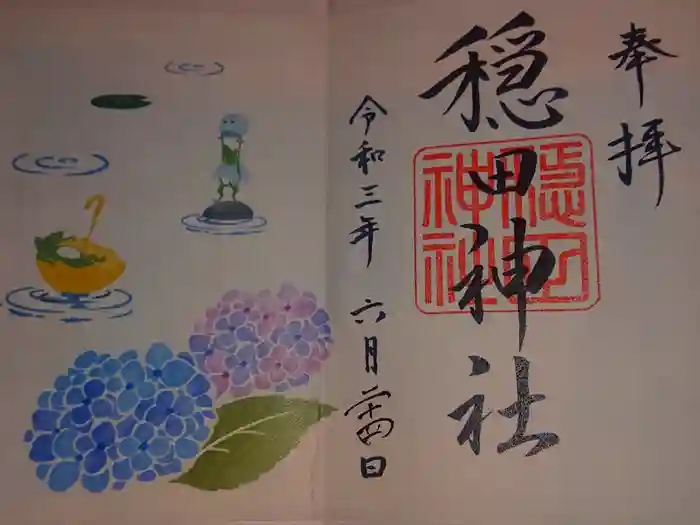 奉拝
穏田神社
穏田
神社
令和三年 六月二十四日